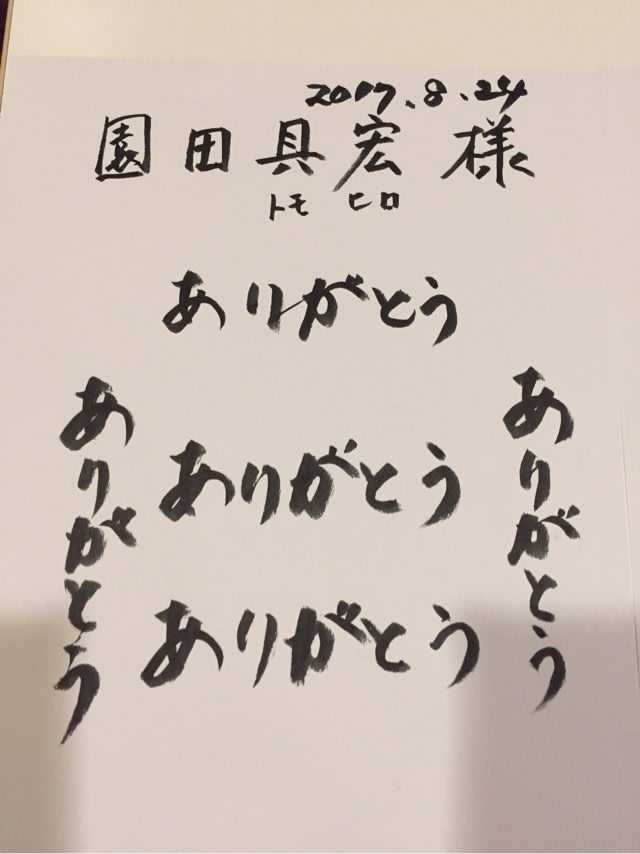 2017.8.24
園田具宏様
トモヒロ
ありがとう
ありがとう
ありがとう
ありがとう
ありがとう